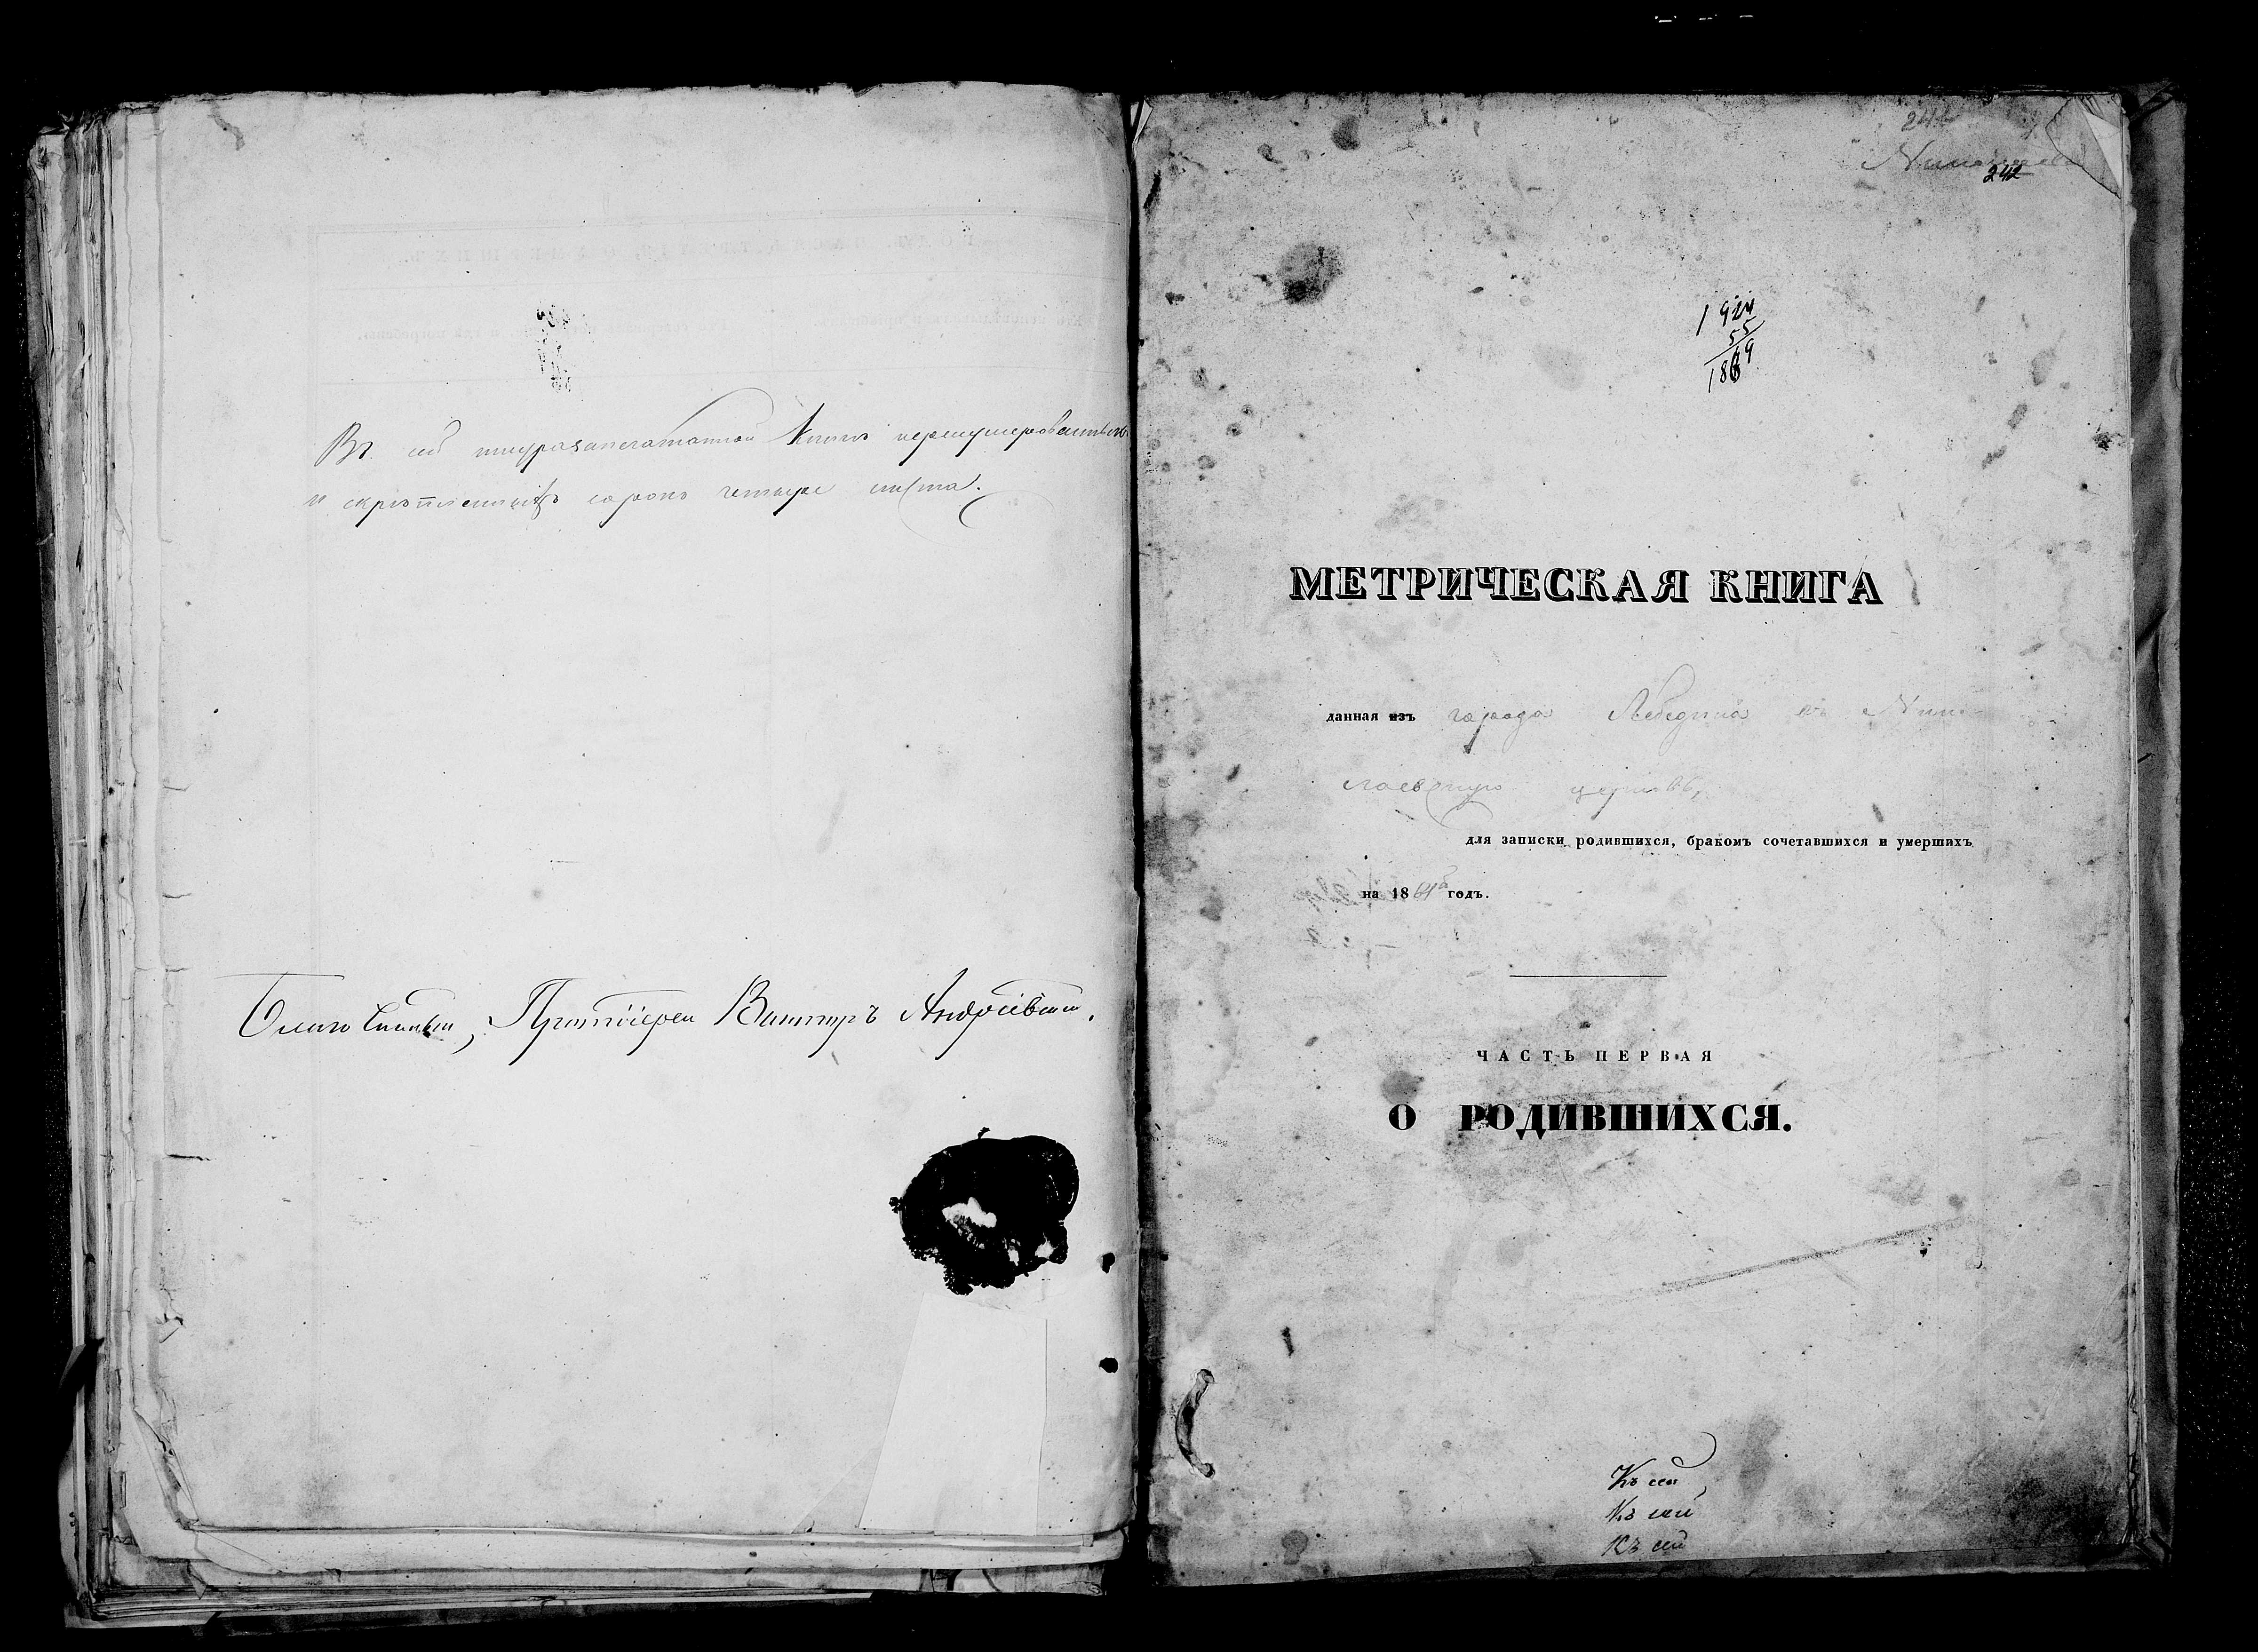 Въ сей шнурозапечатанной книгѣ перенумерованныхъ
и скрѣпленныхъ сорокъ четыре листа.
Благочинный, Протоіерей Викторъ
242
1924
55
1869
МЕТРИЧЕСКАЯ КНИГА
данная изъ города Лебедина въ Нико-
лаевскую церковь,
для записки родившихся, бракомъ сочетавшихся и умершихъ
на 1861й годъ.
ЧАСТЬ ПЕРВАЯ
О РОДИВШИХСЯ.
Къ сей
Къ сей
Къ сей